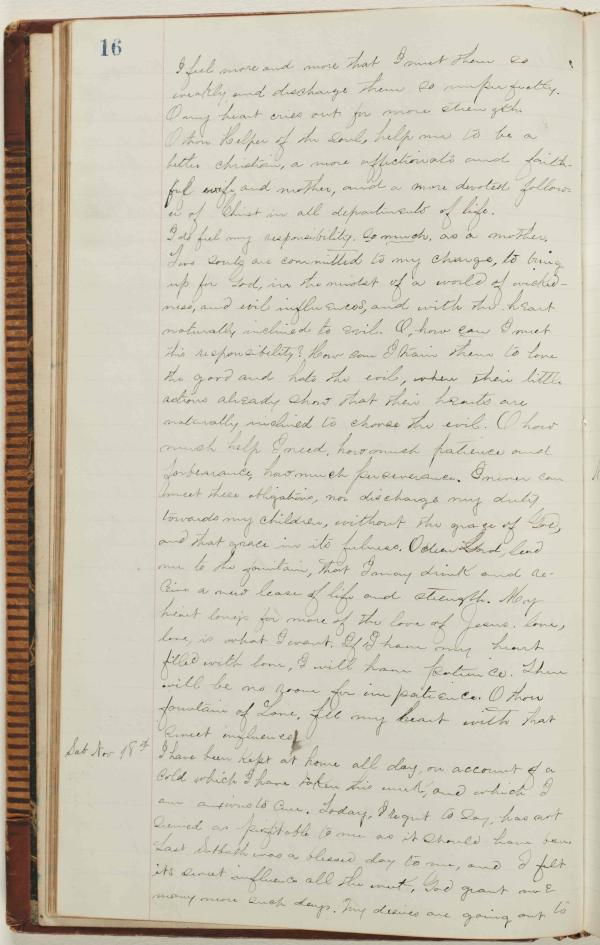 16
I feel more and more that I meet them so
weakly and discharge them so imperfectly.
O my heart cries out for more strength.
O thou Helper of the soul, help me to be a
better christian, a more affectionate and faith-
ful wife, and mother, and a more devoted follow-
er of Christ in all departments of life.
I do feel my responsibility so much, as a mother.
Two souls are committed to my charge, to bring
up for God, in the midst of a world of wicked-
ness, and evil influences, and with the heart
naturally inclined to evil. O, how can I meet
this responsibility? How can I train them to love
the good and hate the evil, when their little
actions already show that their hearts are
naturally inclined to choose the evil. O how
much help I need, how much patience and
forbearance, how much perseverance. I never can
meet these obligations, nor discharge my duty
towards my children, without the grace of God,
and that grace in its fulness. O dear Lord, lead
me to the fountain, that I may drink and re-
ceive a new lease of life and strength. My
heart longs for more of the love of Jesus. love,
love, is what I want. If I have my heart
filled with love, I will have patience. There
will be no room for impatience. O thou
fountain of Love, fill my heart with that
sweet influence!
Sab Nov 18th I have been kept at home all day, on account of a
cold which I have taken this week, and which I
am anxious to cure. Today, I regret to say, has not
seemed as profitable to me as it should have been
Last Sabbath was a blessed day to me, and I felt
its sweet influence all the week. God grant me
many more such days. My desires are going out to